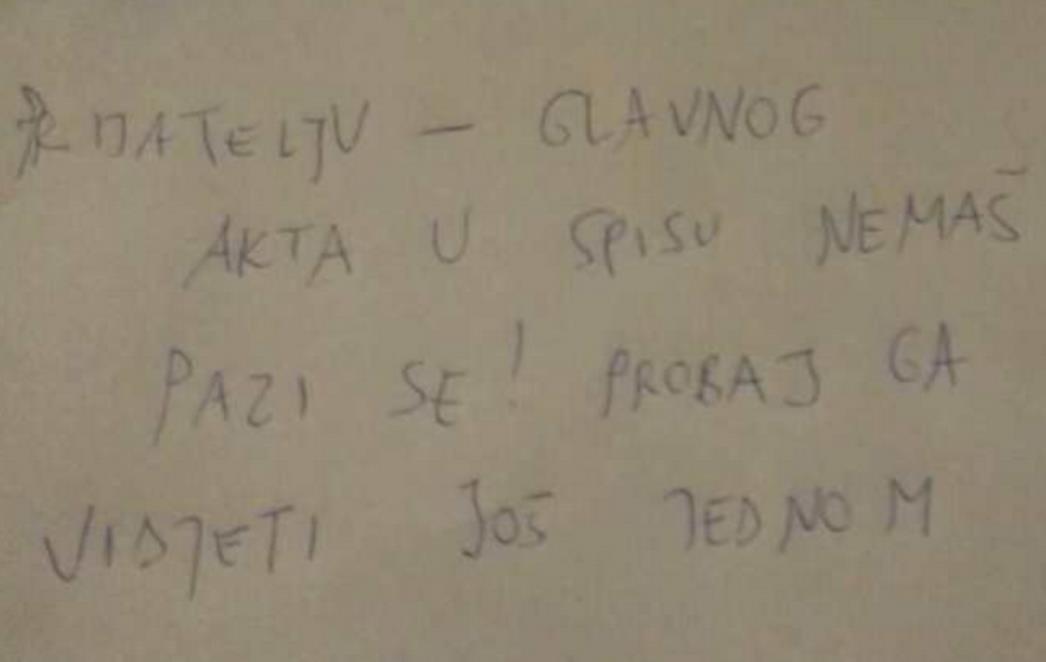 PRIJATELJU – GLAVNOG
AKTA U SPISU NEMAŠ
PAZI SE! PROBAJ GA
VIDJETI JOŠ JEDNOM